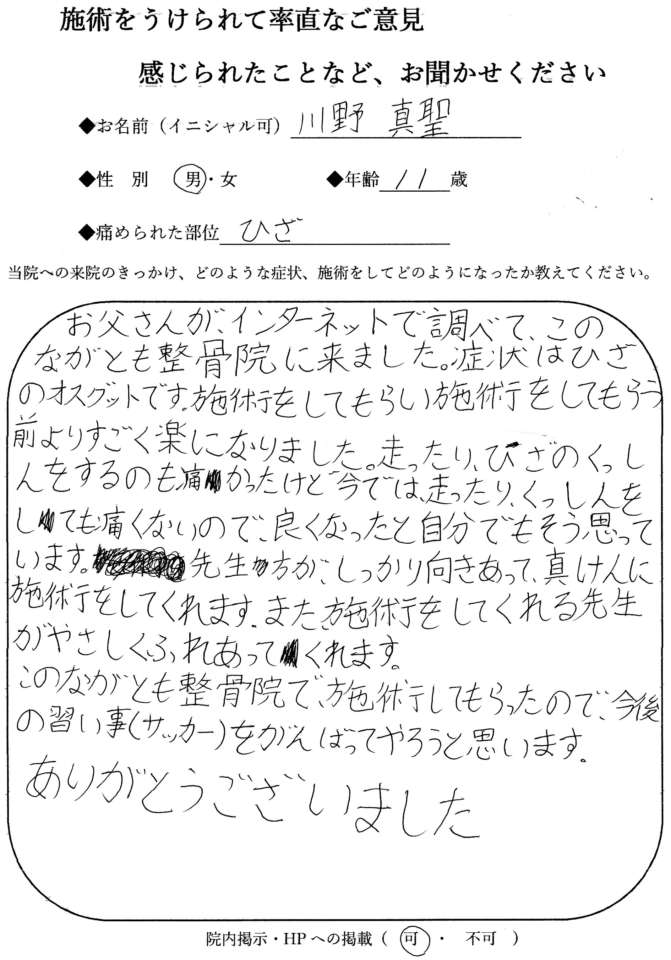 施術をうけられて率直なご意見
感じられたことなど、お聞かせください
◆お名前（イニシャル可）川野 真聖
◆性 別 男・女 ◆年齢 11 歳
◆痛められた部位 ひざ
当院への来院のきっかけ、どのような症状、施術をしてどのようになったか教えてください。
お父さんが、インターネットで調べて、この
ながとも整骨院に来ました。症状はひざ
のオスグットです。施術をしてもらい施術をしてもらう
前よりすごく楽になりました。走ったり、ひざのくっし
んをするのも痛かったけど今では、走ったり、くっしんを
しても痛くないので、良くなったと自分でもそう思って
います。先生方がしっかり向きあって、真けんに
施術をしてくれます。また、施術をしてくれる先生
がやさしく、ふれあってくれます。
このながとも整骨院で、施術してもらったので、今後
の習い事(サッカー)をがんばってやろうと思います。
ありがとうございました
院内掲示・HPへの掲載（ 可 ・ 不可 ）